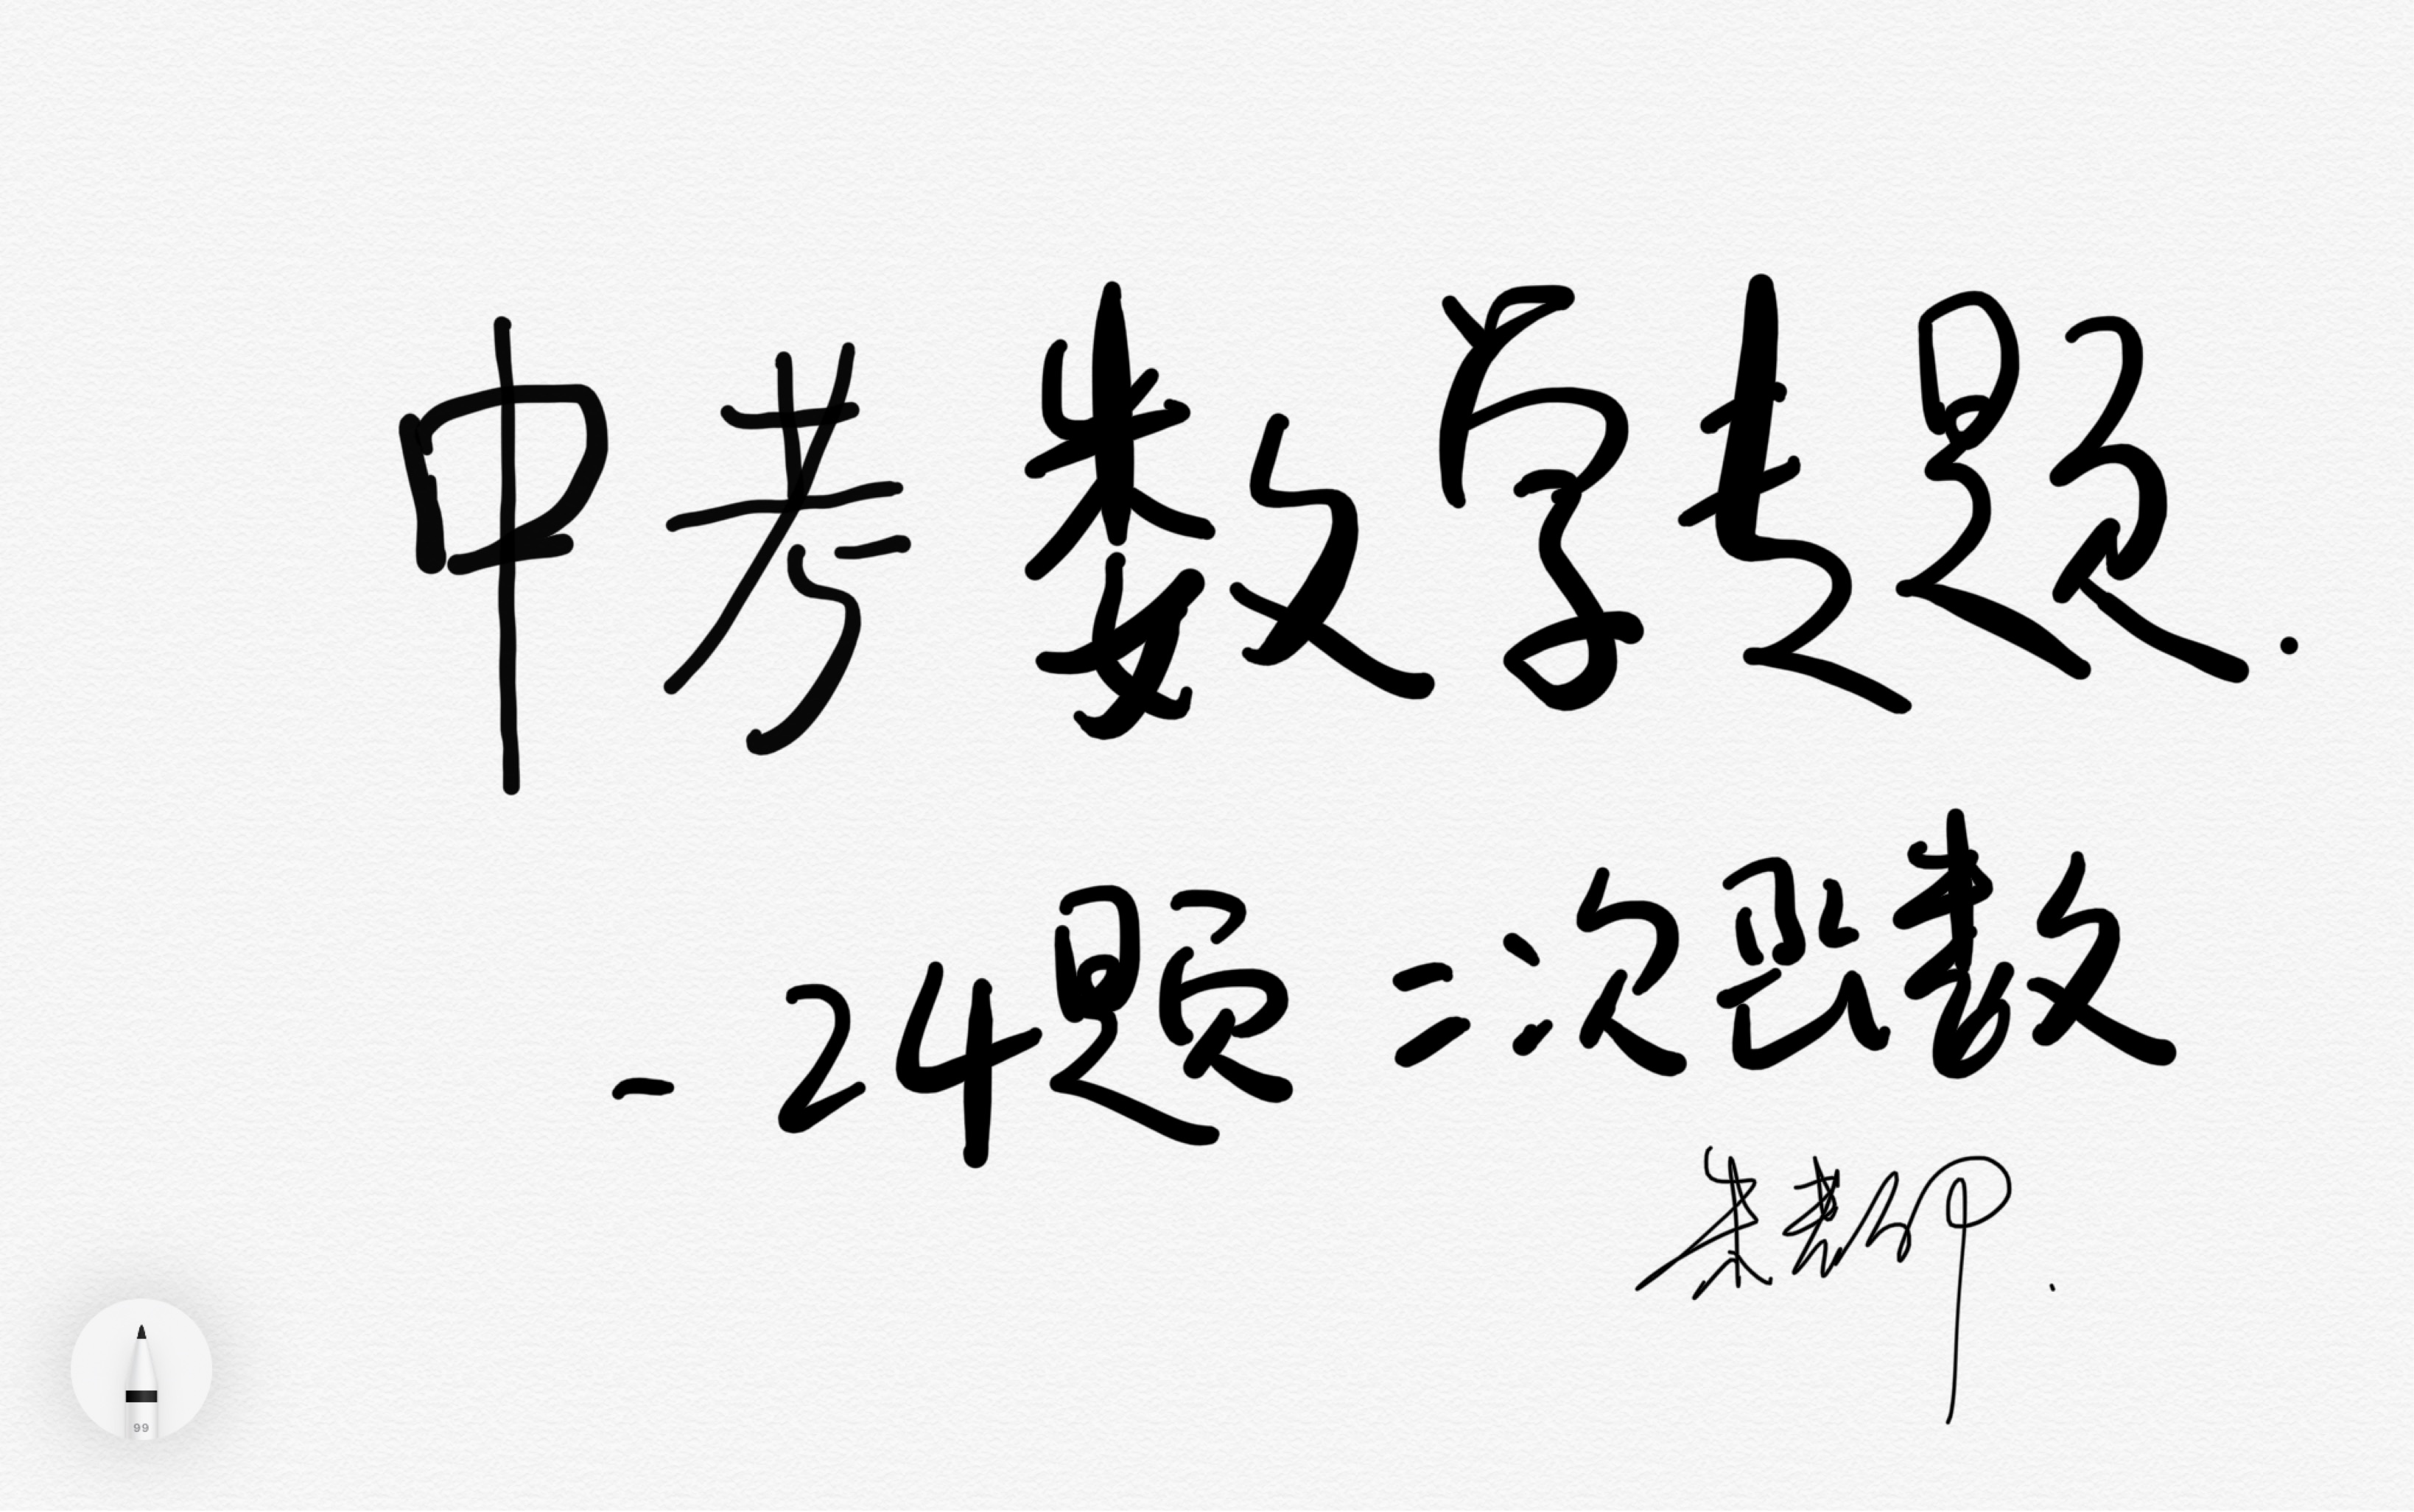 中考数学专题.
-24题 二次函数
朱老师.
99